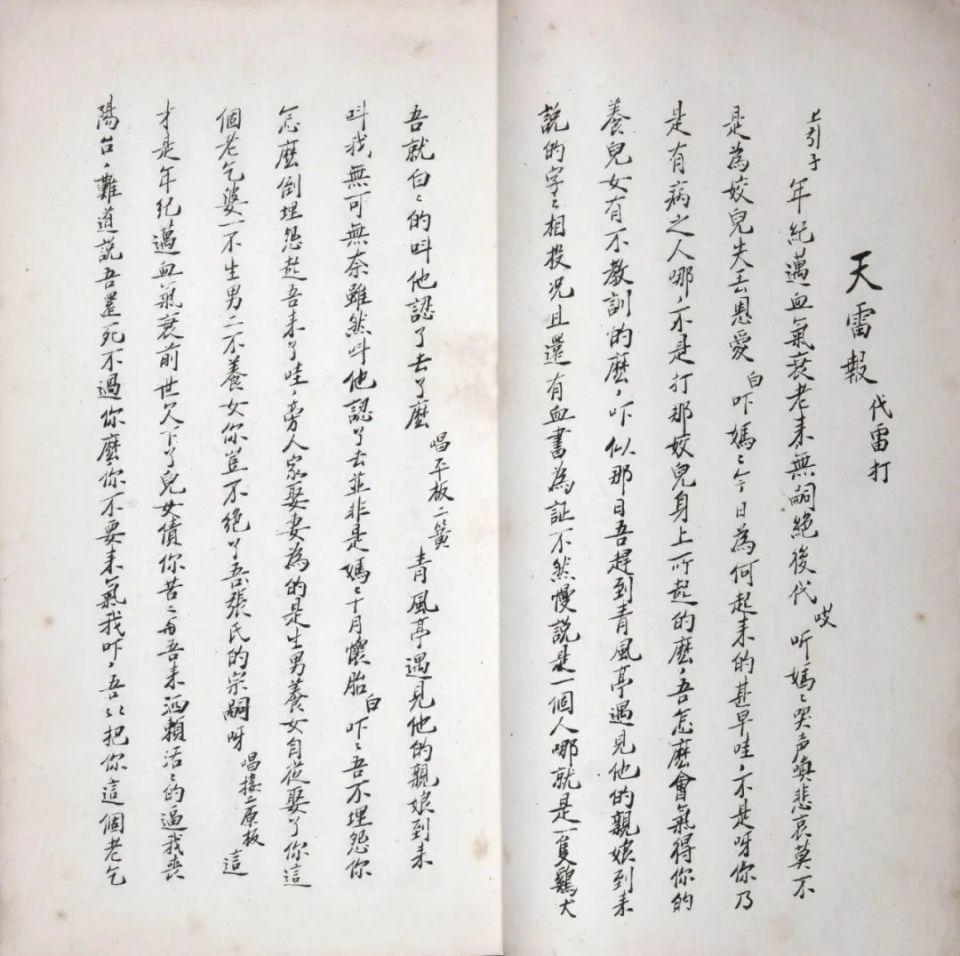 天雷報 代雷打
上引子 年紀邁血氣衰老來無嗣絕後代 哎 听媽〻哭声喚悲哀莫不
是為姣兒失丢恩愛 白 吓媽〻今日為何起來的甚早哇,不是呀你乃
是有病之人哪,不是打那姣兒身上所起的麼,吾怎麼會氣得你的
養兒女有不教訓的麼,吓似那日吾趕到青風亭遇見他的親娘到來
說的字〻相投况且還有血書為証不然慢說是一個人哪就是一隻鷄犬
吾就白〻的呌他認了去了麼 唱平板二簧 青風亭遇見他的親娘到來
呌我無可無奈雖然呌他認了去並非是媽〻十月懷胎 白 吓〻吾不埋怨你
怎麼倒埋怨起吾來了哇,旁人家娶妻為的是生男養女自從娶了你這
個老乞婆一不生男二不養女你豈不絕了吾張氏的宗嗣呀 唱接二原板 這
才是年紀邁血氣衰前世欠下了兒女債你苦〻與吾來洒賴活〻的逼我喪
陽台,難道說吾還死不過你麼你不要來氣我吓,吾〻把你這個老乞